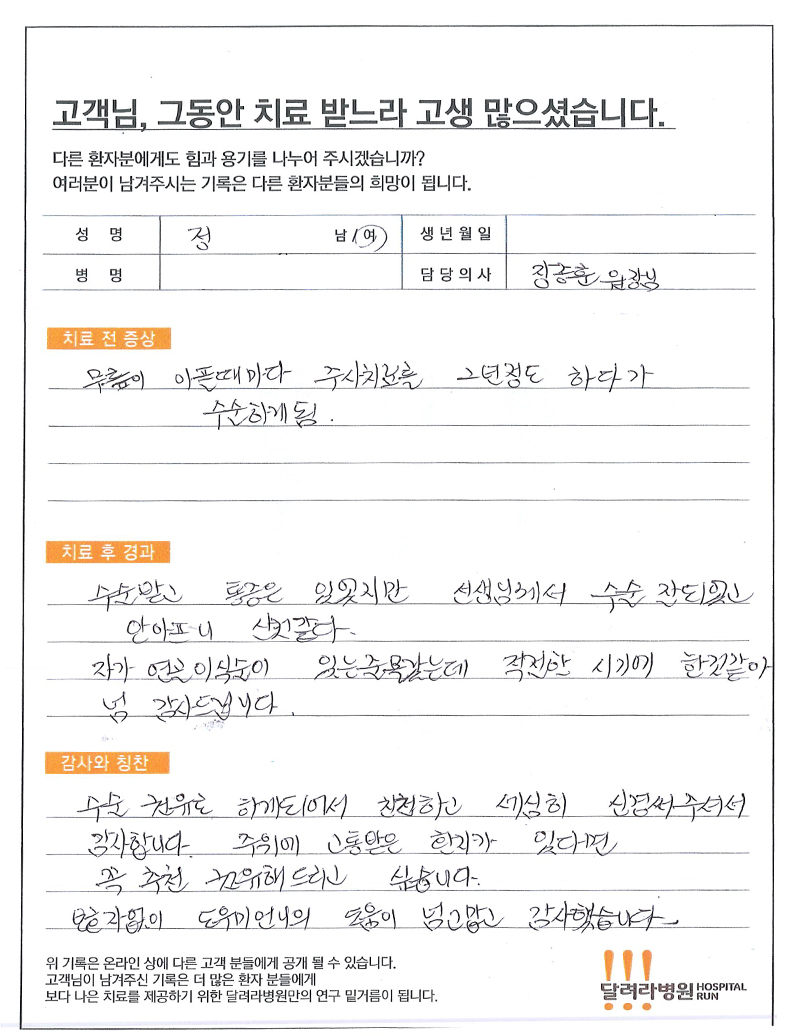 고객님, 그동안 치료 받느라 고생 많으셨습니다.
다른 환자분에게도 힘과 용기를 나누어 주시겠습니까?
여러분이 남겨주시는 기록은 다른 환자분들의 희망이 됩니다.
성 명 정 남/여 생년월일
병 명 담당의사 장종훈 원장님
치료 전 증상
무릎이 아플때마다 주사치료를 2년정도 하다가
수술하게됨.
치료 후 경과
수술받고 통증은 있었지만 선생님께서 수술 잘되었고
안아프니 살것같다.
자가 연골이식술이 있는줄몰랐는데 적절한 시기에 한것같아
넘 감사드립니다.
감사와 칭찬
수술 권유로 하게되어서 친절하고 세심히 신경써주셔서
감사합니다. 주위에 고통받은 환자가 있다면
꼭 추천 권유해드리고 싶습니다.
보호자없이 도우미언니의 도움이 넘고맙고 감사했습니다
위 기록은 온라인 상에 다른 고객 분들에게 공개 될 수 있습니다.
고객님이 남겨주신 기록은 더 많은 환자 분들에게
보다 나은 치료를 제공하기 위한 달려라병원만의 연구 밑거름이 됩니다.
달려라병원 HOSPITAL RUN